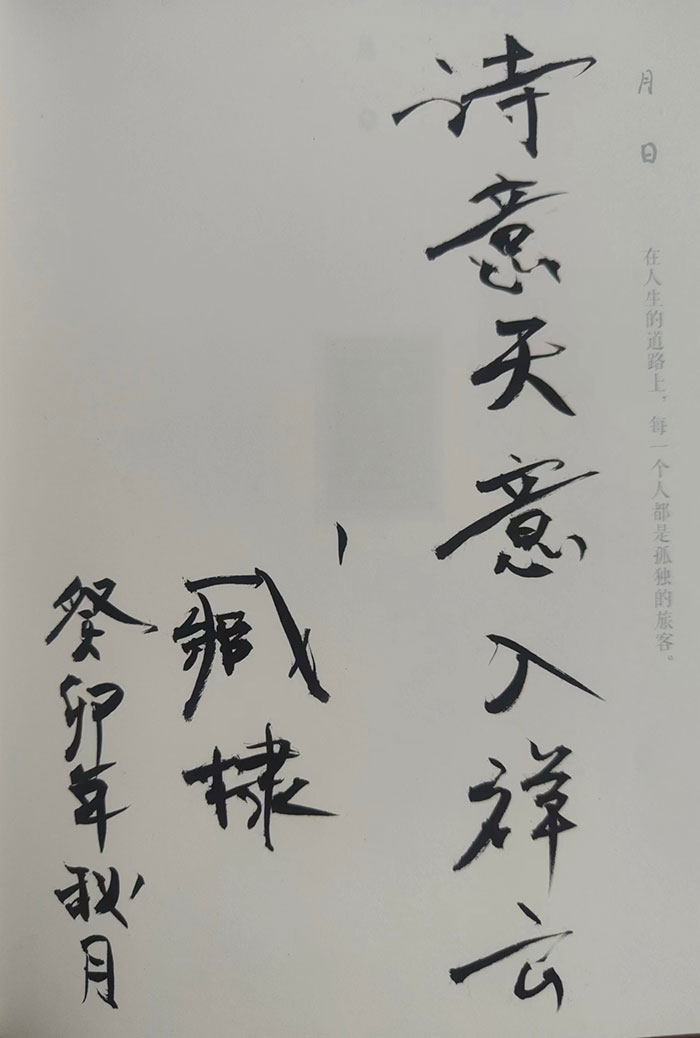 月 日
在人生的道路上，每一个人都是孤独的旅客。
诗意天意入祥云
臧棣
癸卯年秋月